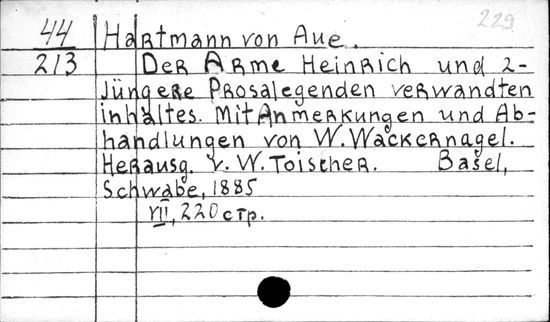 229
44 Hartmann von Aue.
213 Der Arme Heinrich und 2-
Jüngere Prosalegenden verwandten
inhaltes. Mit Anmerkungen und Ab-
handlungen von W. Wackernagel.
Herausg. v. W. Toischer. Basel,
Schwabe, 1885
VII, 220 стр.